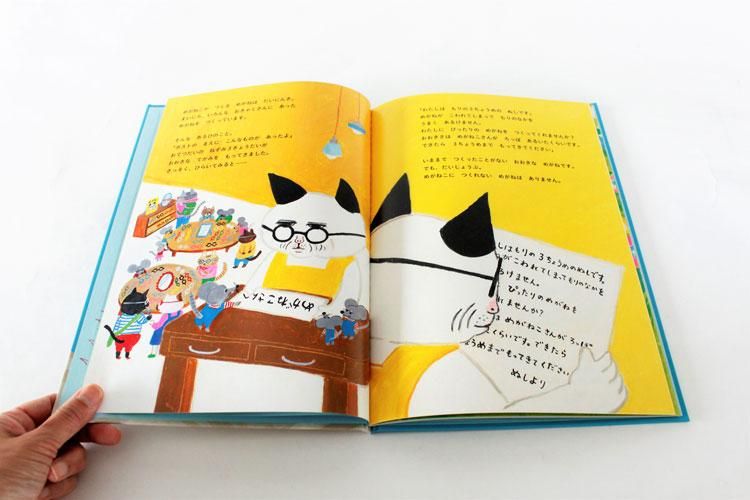 めがねこが つくる めがねは だいにんき。
まいにち、いろんな おきゃくさんに あった
めがねを つくっています。
そんな あるひのこと。
「ポストの まえに こんなものが あったよ」
おてつだいの ねずみ3きょうだいが
おおきな てがみを もってきました。
さっそく、ひらいてみると──
めがねこさんへ
「わたしは もりの3ちょうめの ぬしです。
めがねが こわれてしまって もりのなかを
うまく あるけません。
わたしに ぴったりの めがねを つくってくれませんか?
おおきさは めがねこさんが ろっぽ あるいたくらいです。
できたら 3ちょうめまで もってきてください」
いままで つくったことがない おおきな めがねです。
でも、だいじょうぶ。
めがねこに つくれない めがねは ありません。
しはもりの3ちょうめのぬしです。
がこわれてしまってもりのなかを
るけません。
ぴったりのめがねを
れませんか?
は めがねこさんが ろっぽ
くらいです。できたら
ょうめまでもってきてください
ぬしより